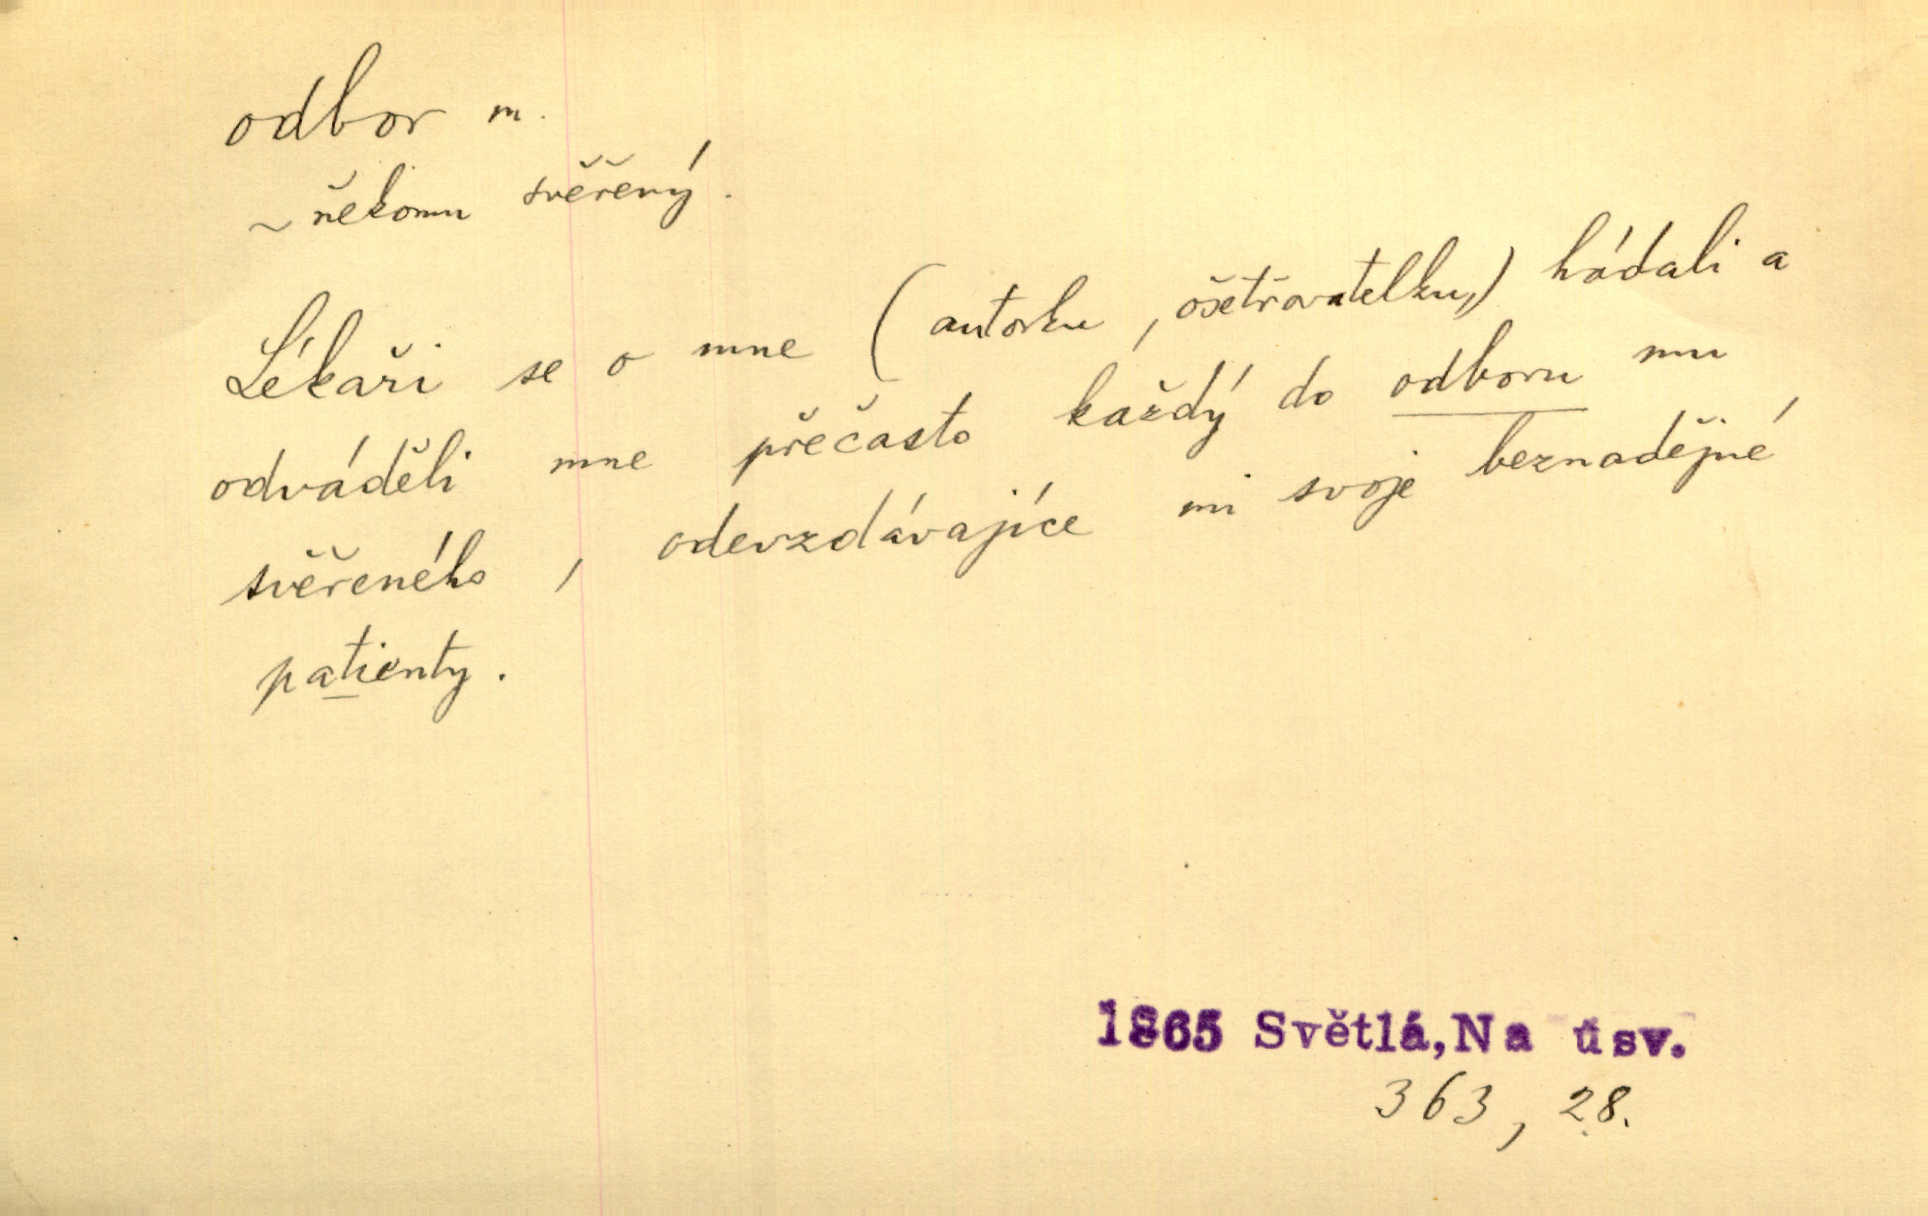 odbor m.
~ někomu svěřený.
Lékaři se o mne (autorku, ošetřovatelku,) hádali a
odváděli mne přečasto každý do odboru mu
svěřeného, odevzdávajíce mi svoje beznadějné
patienty.
1865 Světlá, Na úsv.
363, 28.